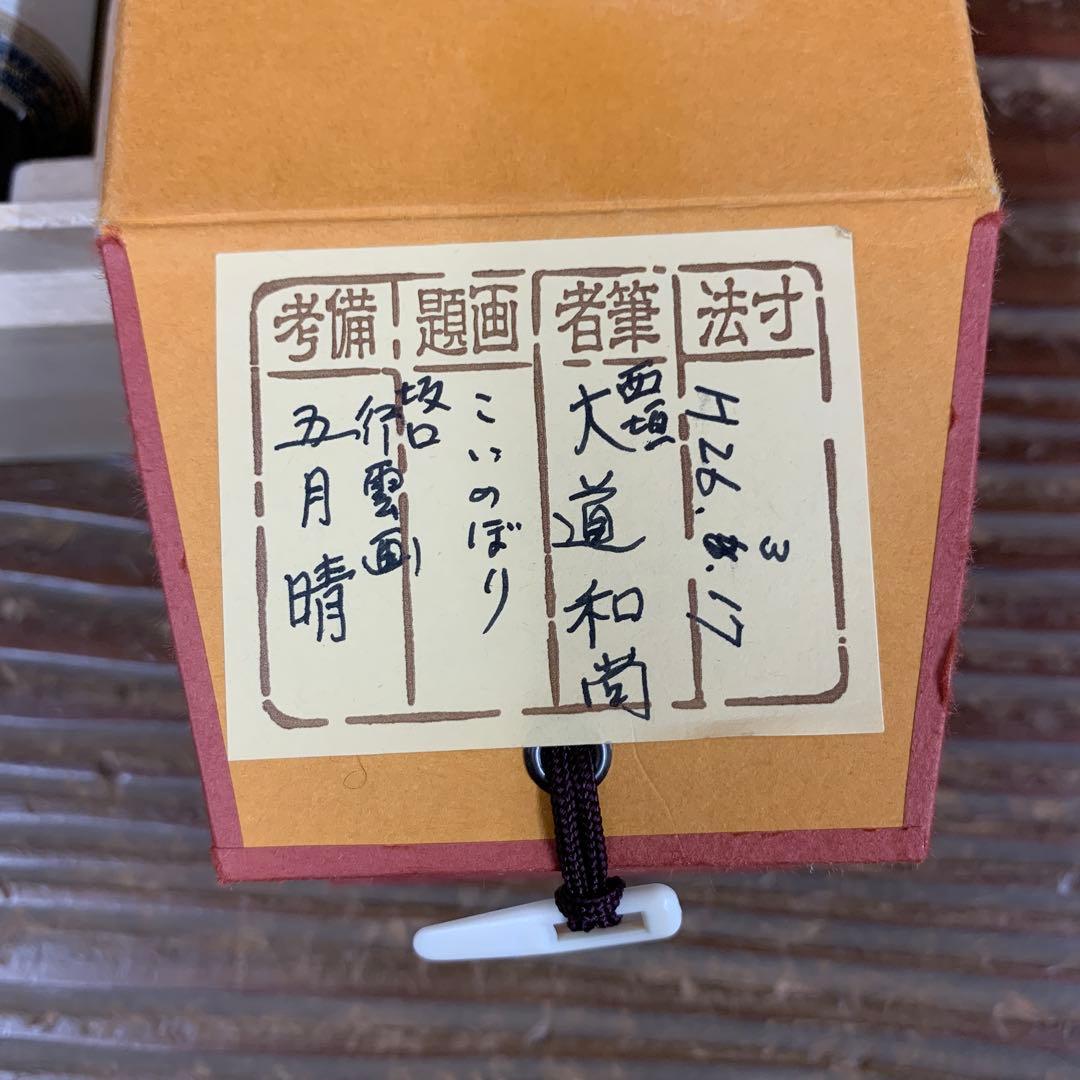 寸法
H26.3.17
筆者
西垣
大道和尚
画題
こいのぼり
備考
坂口
行雲画
五月晴